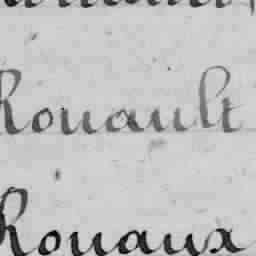 Rouault
Rouaux